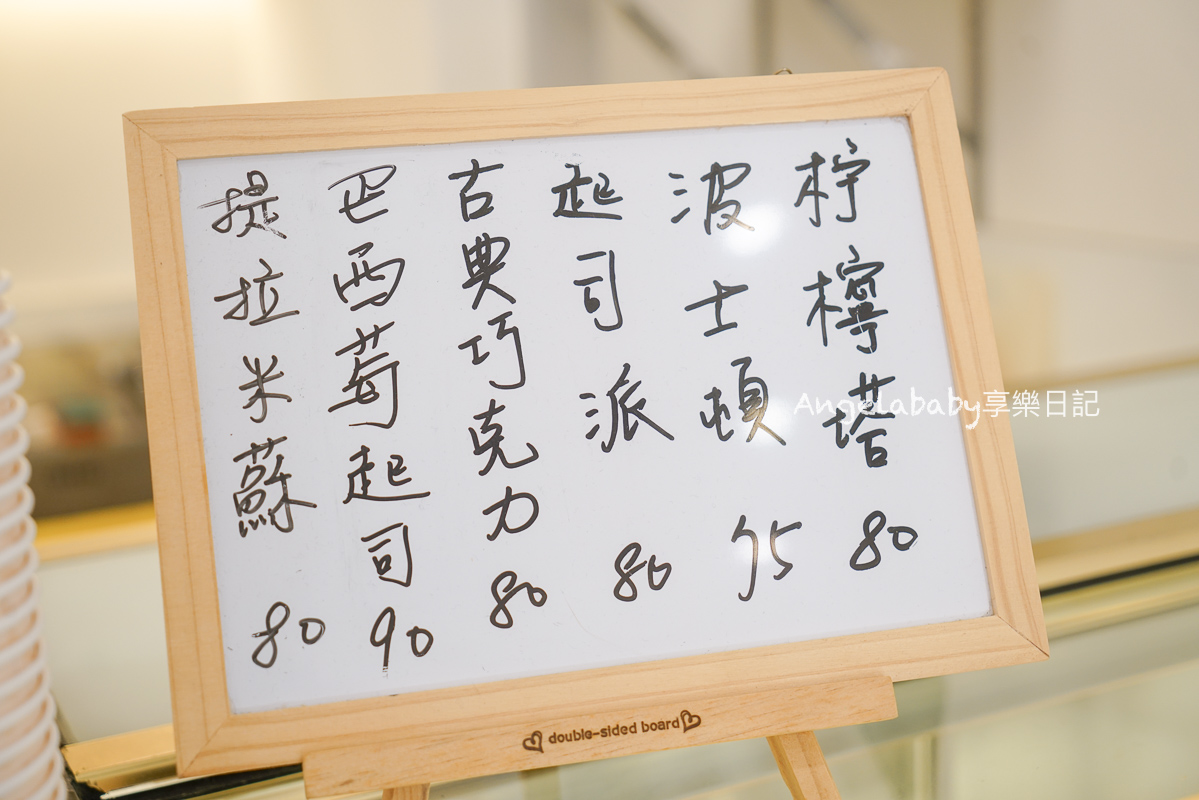 柠檸塔 80
波士頓 95
起司派 80
古典巧克力 80
巴西莓起司 90
提拉米蘇 80
double-sided board
Angelababy享樂日記